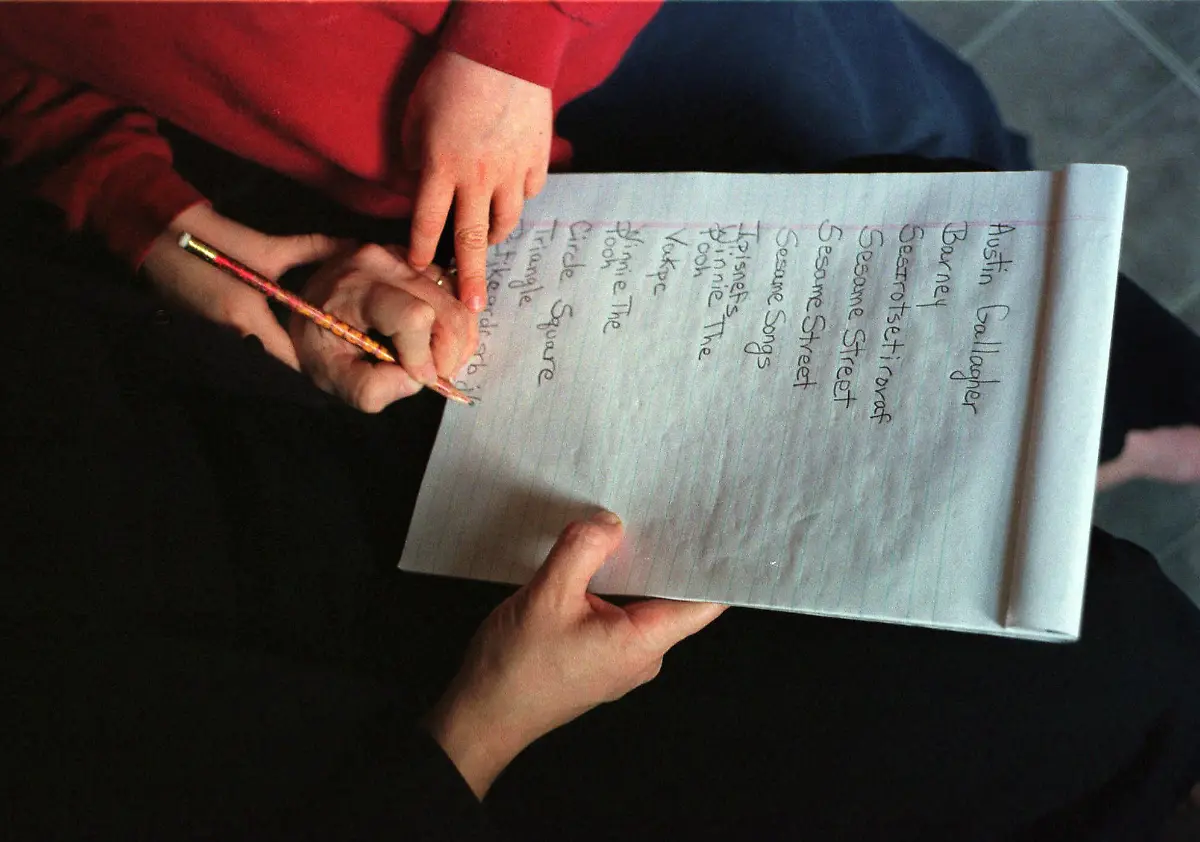 Austin Gallagher
Barney
Sesame Street
Sesame Street
Sesame Songs
Winnie The
Pooh
Vakpc
Winnie The
Pooh
Circle Square
Triangle